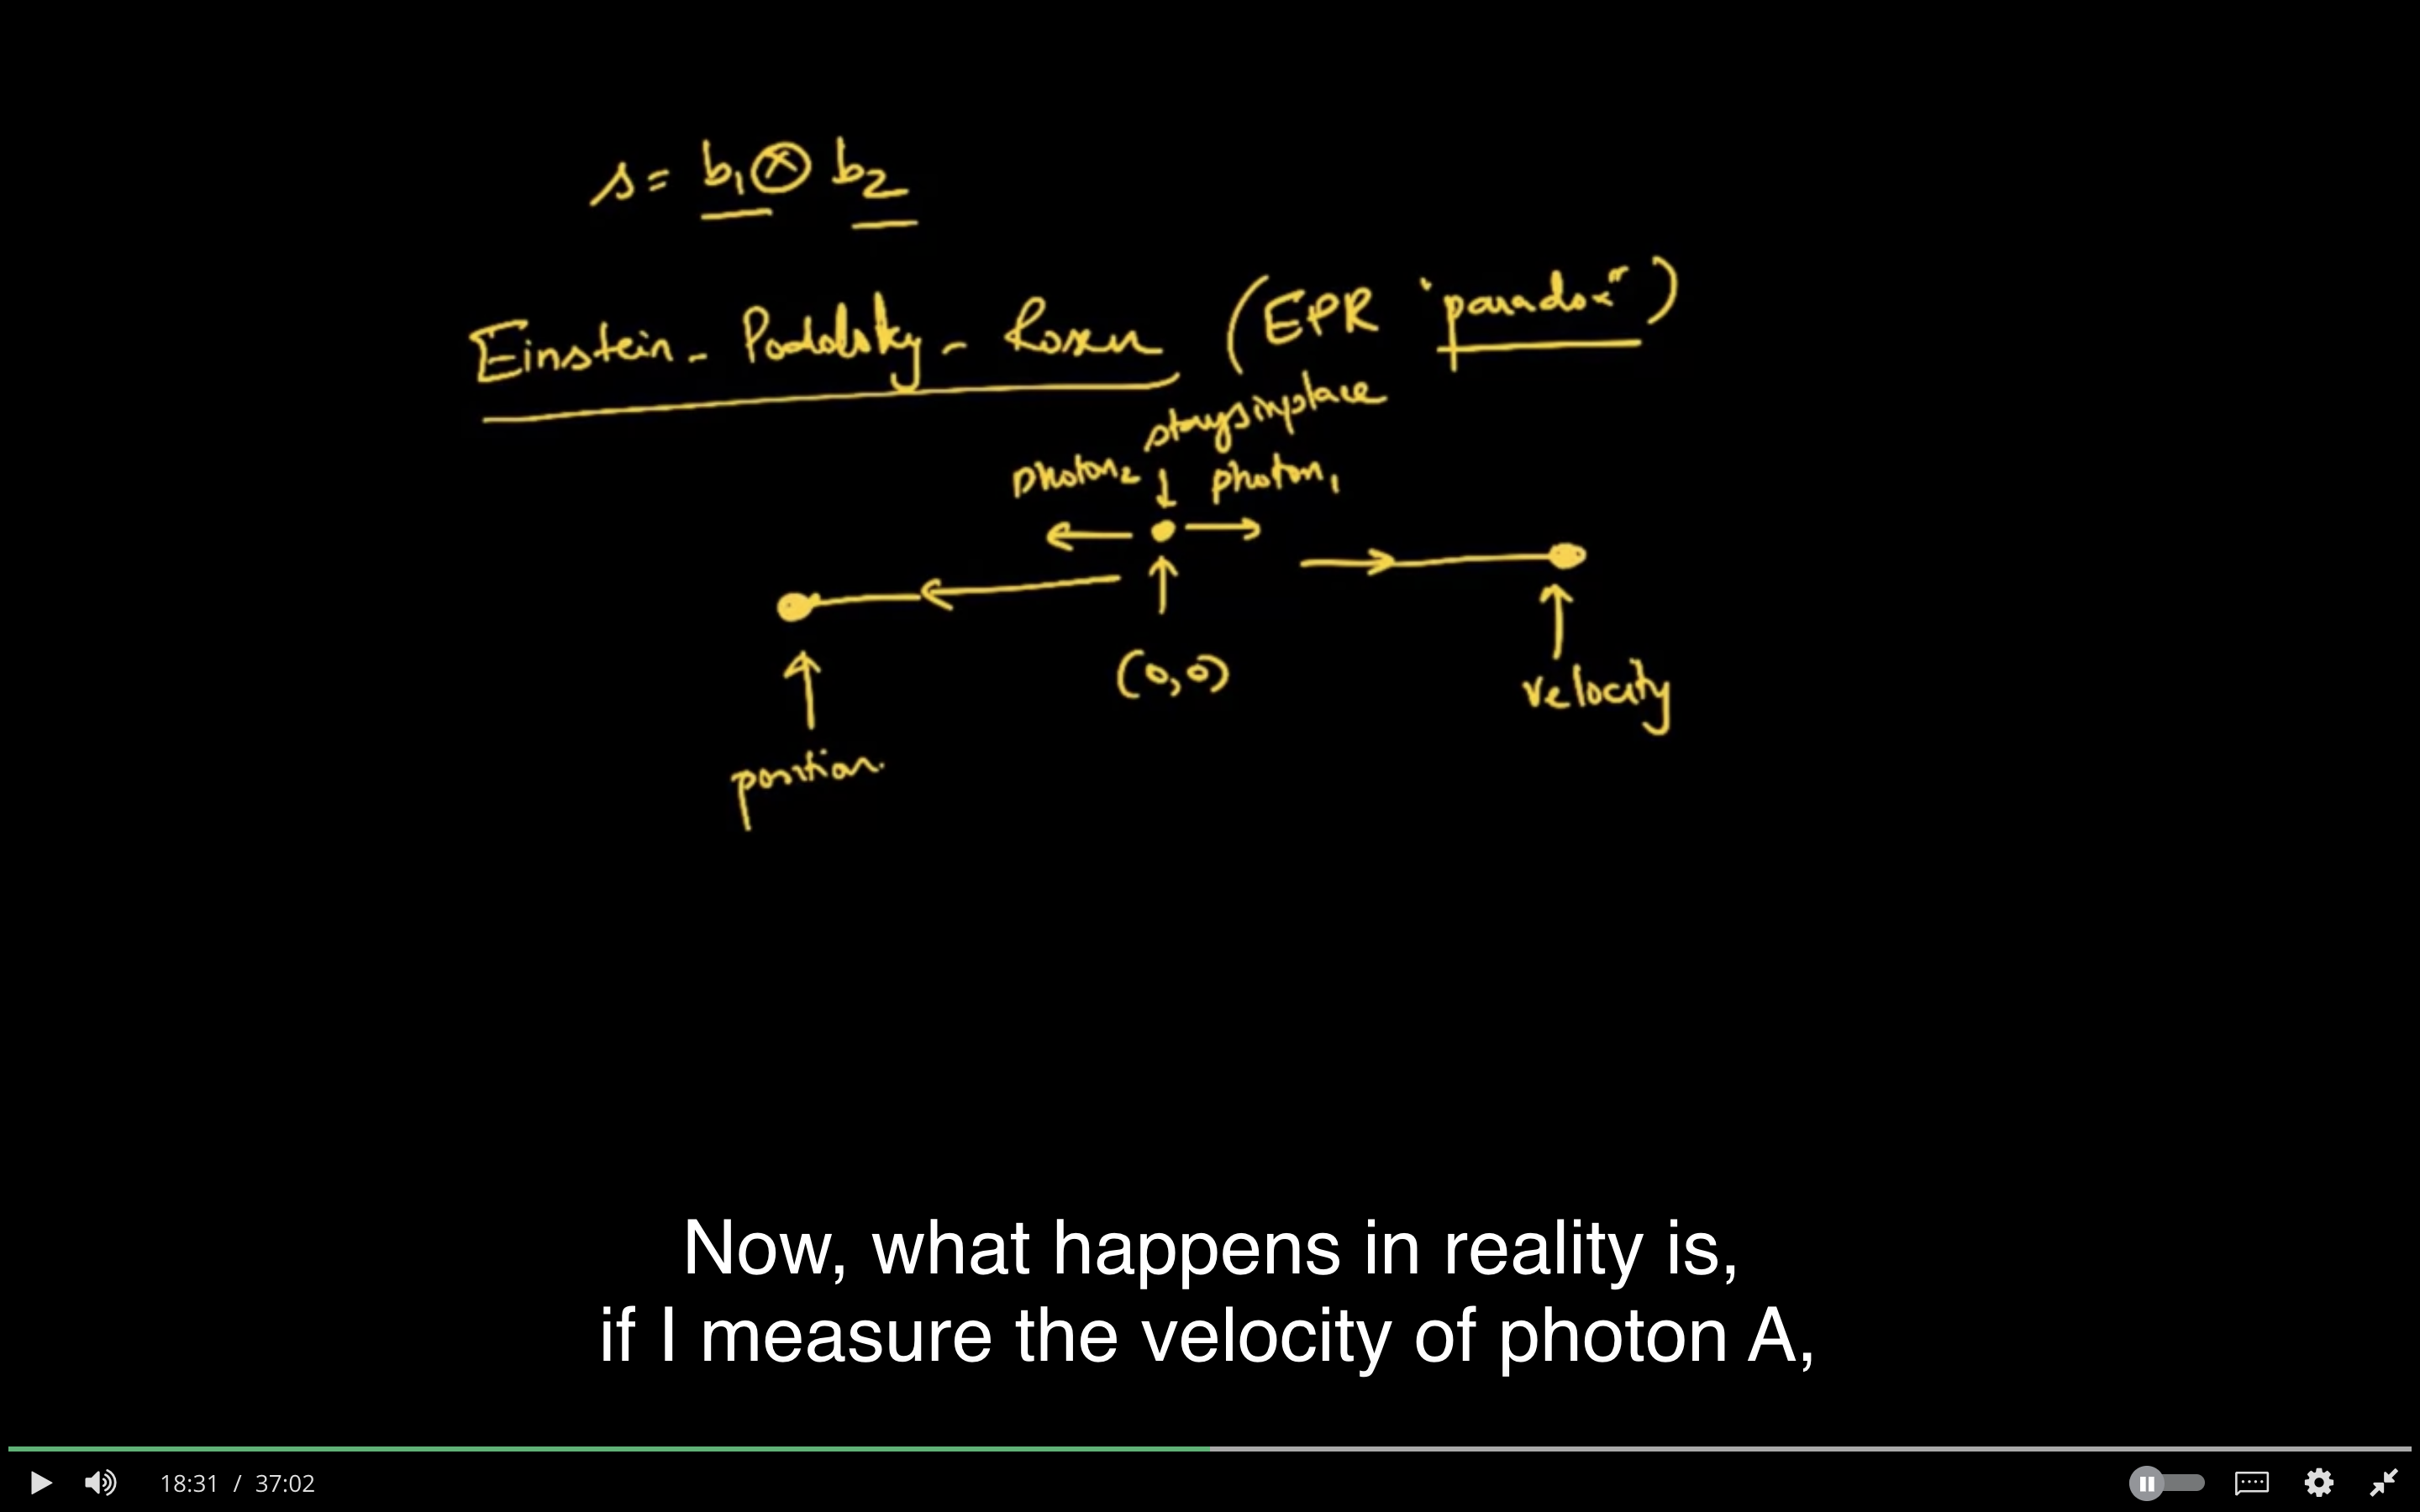 s = b₁ ⊗ b₂
Einstein - Podolsky - Rosen (EPR "paradox")
stays in place
photon₂ photon₁
(0,0)
velocity
position.
Now, what happens in reality is,
if I measure the velocity of photon A,
18:31 / 37:02